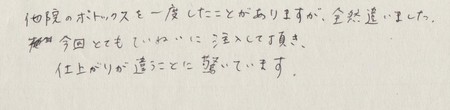 他院のボトックスを一度したことがありますが、全然違いました。
今回とてもていねいに注入して頂き、
仕上がりが違うことに驚いています。